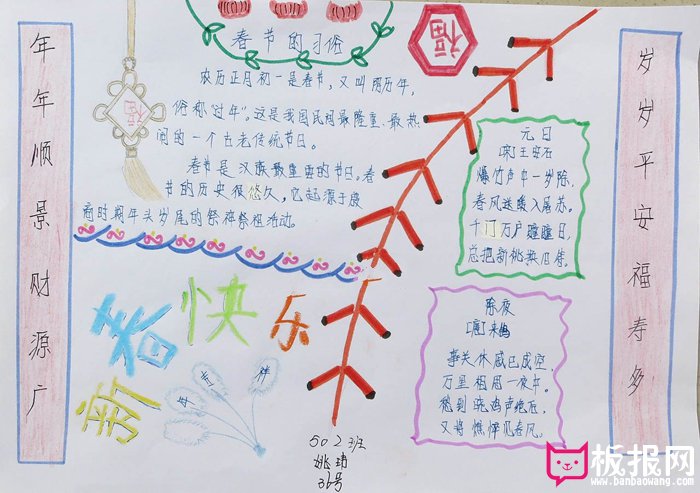 年年顺景财源广
春节的习俗
福
福
农历正月初一是春节，又叫阴历年，
俗称"过年"。这是我国民间最隆重、最热
闹的一个古老传统节日。
春节是汉族最重要的节日。春
节的历史很悠久，它起源于殷
商时期年头岁尾的祭神祭祖活动。
元日
[宋]王安石
爆竹声中一岁除，
春风送暖入屠苏。
千门万户瞳瞳日，
总把新桃换旧符。
岁岁平安福寿多
除夜
[唐]来鹄
事关休戚已成空，
万里相思一夜中。
愁到晓鸡声绝后，
又将憔悴见春风。
新春快乐
502班
姚玮
36号
板报网
www.banbaowang.com